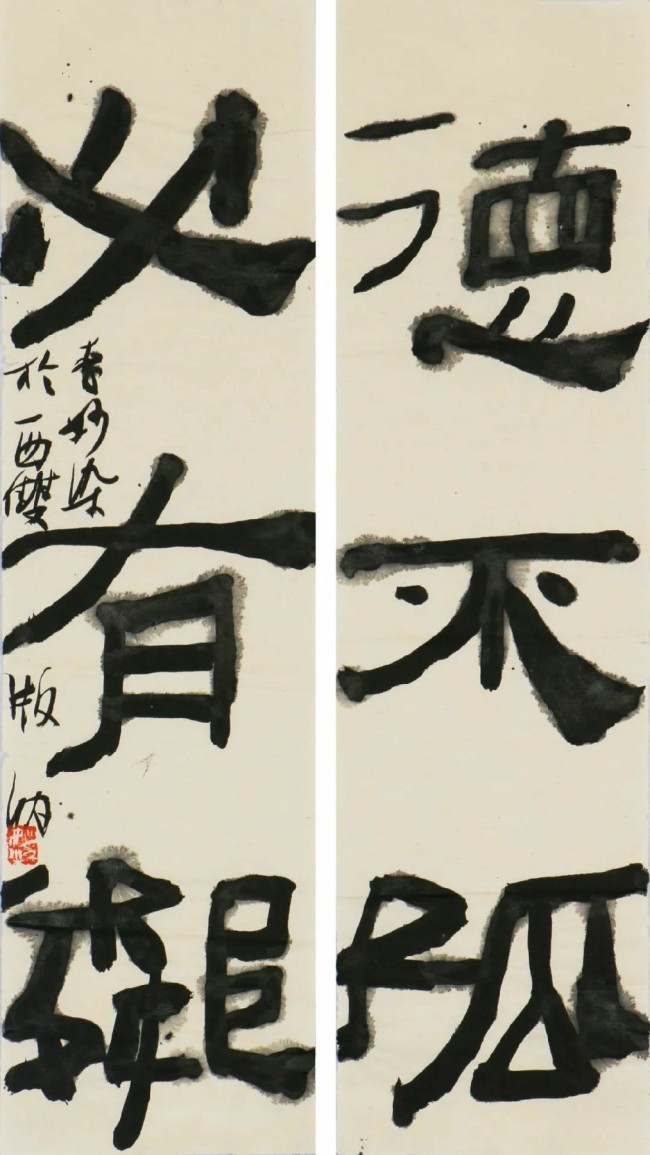 德不孤
必有鄰
春妙染
於西雙版納